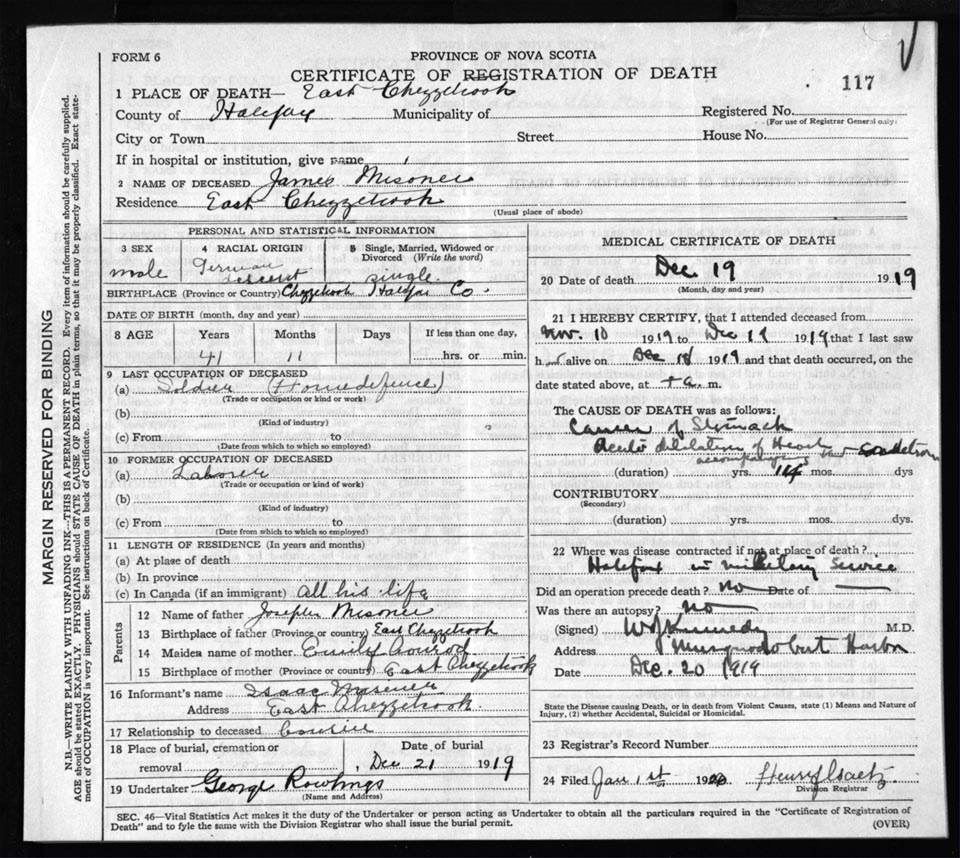 FORM 6
PROVINCE OF NOVA SCOTIA
CERTIFICATE OF REGISTRATION OF DEATH
117
1 PLACE OF DEATH— East Chezzetcook
County of Halifax Municipality of Registered No.
(For use of Registrar General only)
City or Town Street House No.
If in hospital or institution, give name
2 NAME OF DECEASED James Misoner
Residence East Chezzetcook
(Usual place of abode)
PERSONAL AND STATISTICAL INFORMATION
3 SEX 4 RACIAL ORIGIN 5 Single, Married, Widowed or
Divorced (Write the word)
male German descent single
BIRTHPLACE (Province or Country) Chezzetcook Halifax Co.
DATE OF BIRTH (month, day and year)
8 AGE Years Months Days If less than one day,
41 11 hrs. or min.
9 LAST OCCUPATION OF DECEASED
(a) Soldier (Homedefence)
(Trade or occupation or kind or work)
(b)
(Kind of industry)
(c) From to
(Date from which to which so employed)
10 FORMER OCCUPATION OF DECEASED
(a) Laborer
(Trade or occupation or kind of work)
(b)
(Kind of industry)
(c) From to
(Date from which to which so employed)
11 LENGTH OF RESIDENCE (In years and months)
(a) At place of death
(b) In province
(c) In Canada (if an immigrant) all his life
Parents
12 Name of father Joseph Misoner
13 Birthplace of father (Province or country) East Chezzetcook
14 Maiden name of mother Emily Conrod
15 Birthplace of mother (Province or country) East Chezzetcook
16 Informant's name Isaac Misener
Address East Chezzetcook
17 Relationship to deceased Cousin
18 Place of burial, cremation or Date of burial
removal Dec 21 1919
19 Undertaker George Rowlings
(Name and Address)
MEDICAL CERTIFICATE OF DEATH
20 Date of death Dec 19 1919
(Month, day and year)
21 I HEREBY CERTIFY, that I attended deceased from
Nov. 10 1919 to Dec 19 1919 that I last saw
h alive on Dec 18 1919 and that death occurred, on the
date stated above, at m.
The CAUSE OF DEATH was as follows:
Cancer of Stomach
Acute dilatation of Heart
accompanying
(duration) yrs. 14 mos. dys
CONTRIBUTORY
(Secondary)
(duration) yrs. mos. dys.
22 Where was disease contracted if not at place of death?
Halifax in military service
Did an operation precede death? no Date of
Was there an autopsy? no
(Signed) W J Kennedy M.D.
Address Musquodoboit Harbor
Date Dec. 20 1919
State the Disease causing Death, or in death from Violent Causes, state (1) Means and Nature of
Injury, (2) whether Accidental, Suicidal or Homicidal.
23 Registrar's Record Number
24 Filed Jan 1st 1920 Henry Isaetz
Division Registrar
SEC. 46—Vital Statistics Act makes it the duty of the Undertaker or person acting as Undertaker to obtain all the particulars required in the "Certificate of Registration of
Death" and to fyle the same with the Division Registrar who shall issue the burial permit. (OVER)
MARGIN RESERVED FOR BINDING
N.B.—WRITE PLAINLY WITH UNFADING INK—THIS IS A PERMANENT RECORD. Every item of information should be carefully supplied.
AGE should be stated EXACTLY. PHYSICIANS should STATE CAUSE OF DEATH in plain terms, so that it may be properly classified. Exact state-
ment of OCCUPATION is very important. See instructions on back of Certificate.